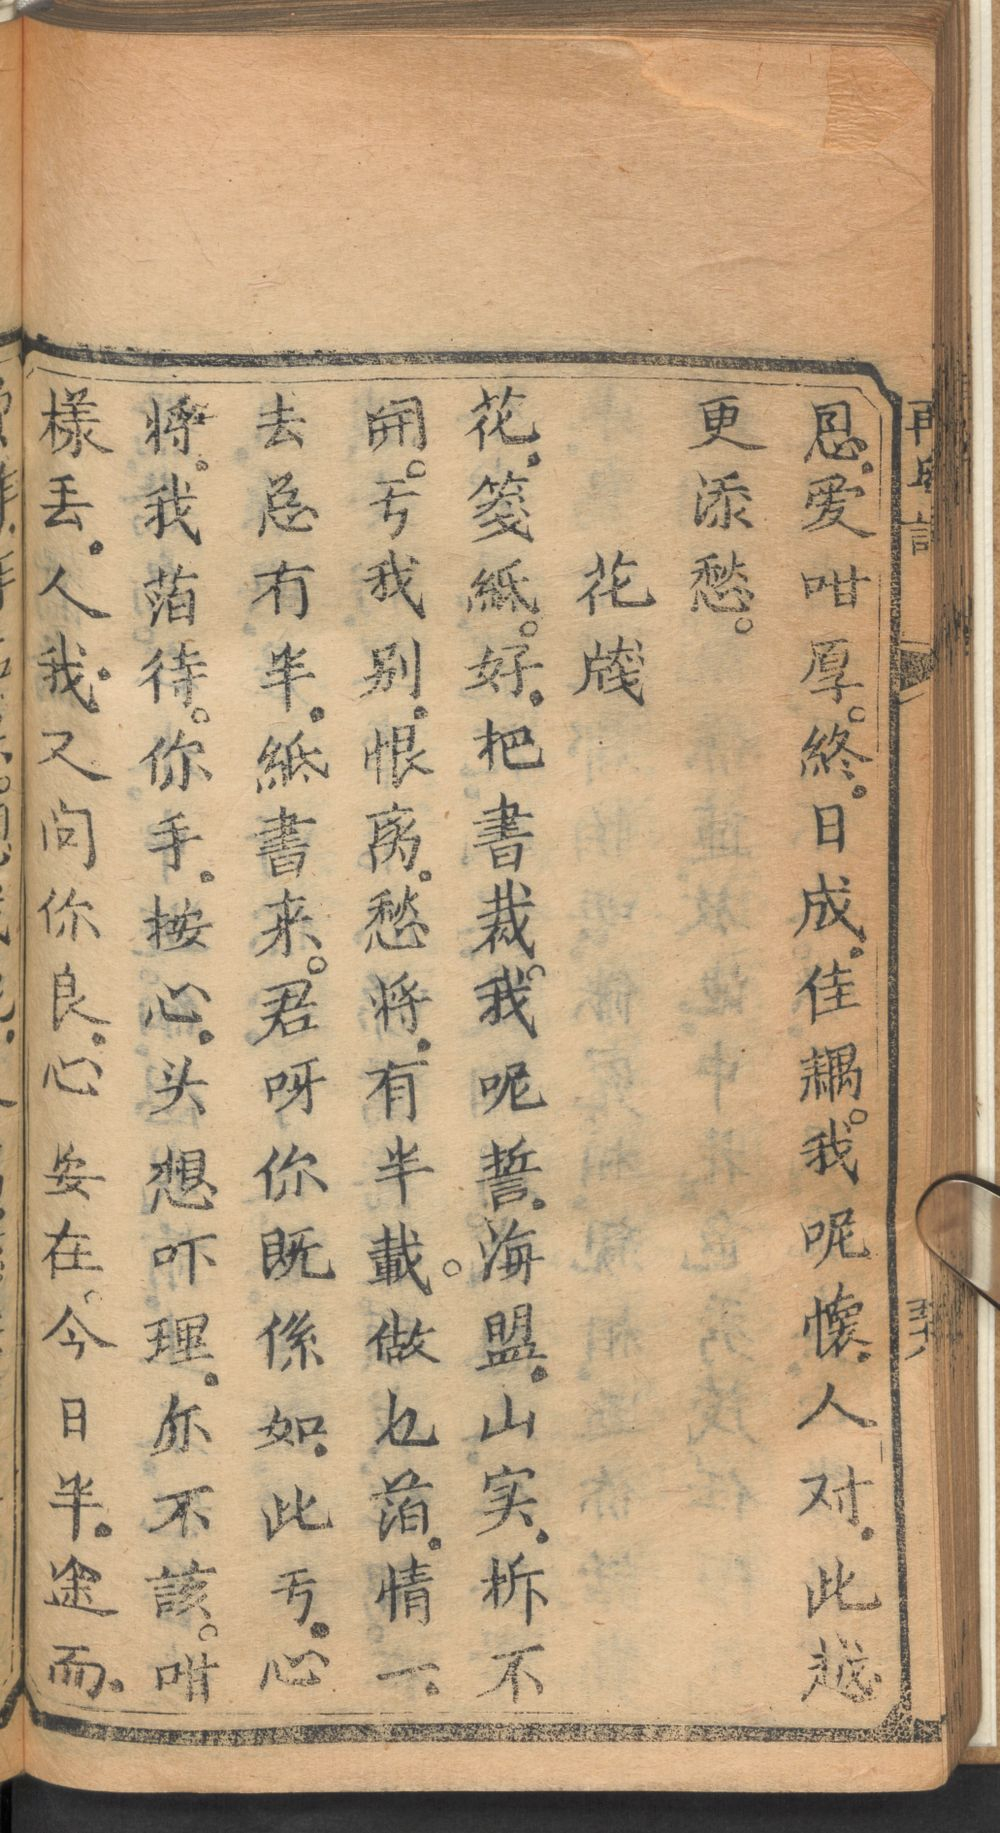 恩愛咁厚。終日成佳耦。我呢懷人对此越
更添愁。
花牋
花箋紙。好把書裁。我呢誓海盟山实拆不
開。亏我别恨离愁將有半載。做乜萡情一
去总冇半紙書来。君呀你既係如此亏心
将我萡待。你手按心头想吓理尔不該。咁
樣丢人我又问你良心安在。今日半途而